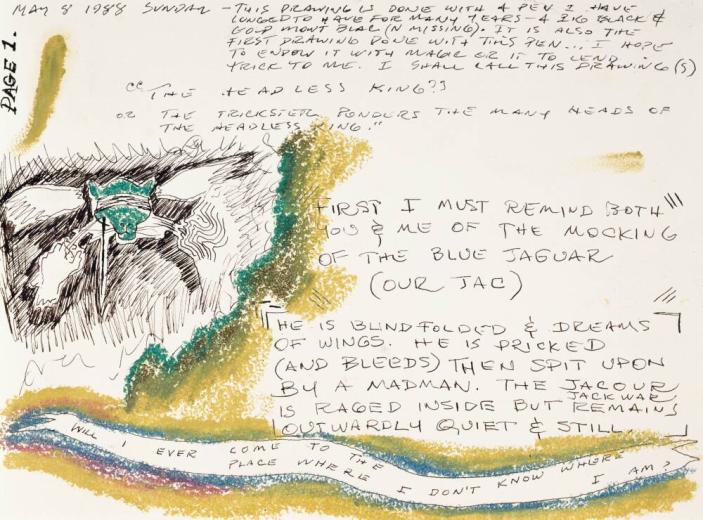 MAY 8 1988 SUNDAY - THIS DRAWING IS DONE WITH A PEN I HAVE
LONGED TO HAVE FOR MANY YEARS - A BIG BLACK &
GOLD MONT BLAC (N MISSING). IT IS ALSO THE
FIRST DRAWING DONE WITH THIS PEN... I HOPE
TO ENDOW IT WITH MAGIC OR IT TO LEND
TRICK TO ME. I SHALL CALL THIS DRAWING(S)
PAGE 1.
"THE HEADLESS KING??
OR THE TRICKSTER PONDERS THE MANY HEADS OF
THE HEADLESS KING."
FIRST I MUST REMIND BOTH
YOU & ME OF THE MOCKING
OF THE BLUE JAGUAR
(OUR JAC)
HE IS BLINDFOLDED & DREAMS
OF WINGS. HE IS PRICKED
(AND BLEEDS) THEN SPIT UPON
BY A MADMAN. THE JACOUR
JACKWAR
IS RAGED INSIDE BUT REMAINS
OUTWARDLY QUIET & STILL.
WILL I EVER COME TO THE
PLACE WHERE I DON'T KNOW WHERE
I AM?